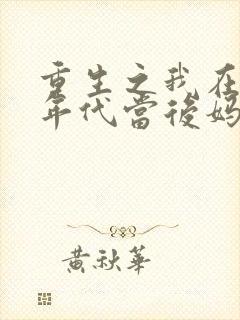 重生之我在
年代當後媽
黃秋華